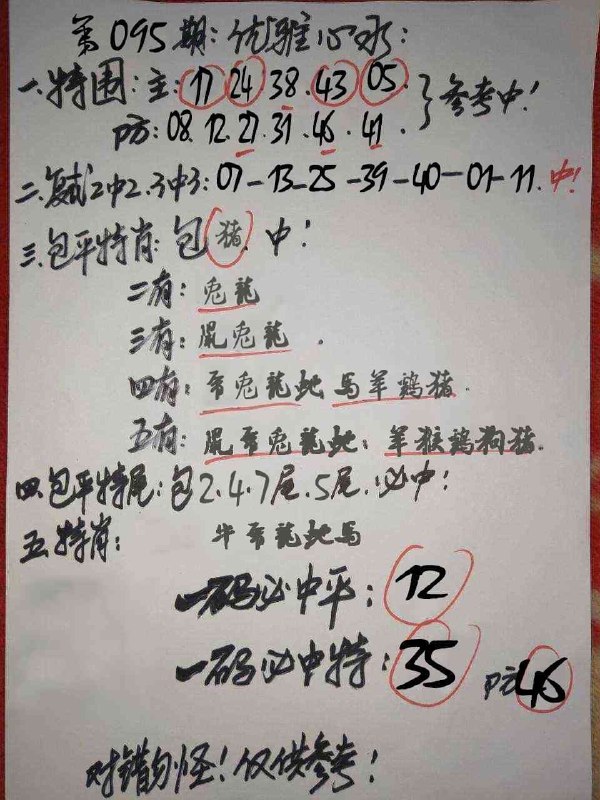 第095期：优雅心水：
一.特围：主：17 24 38.43 05.
防：08.12.27.31.46.41.
参考中！
二.复式2中2.3中3：07-13-25-39-40-01-11.中！
三.包平特肖：包猪.中！
二有：兔龍
三有：鼠兔龍.
四有：兔龍蛇馬羊鷄猪.
五有：鼠兔龍蛇：羊猴鷄狗猪.
四.包平特尾：包2.4.7尾.5尾.必中！
五.特肖：牛龍蛇馬
一码必中平：12
一码必中特：35 防46
对错勿怪！仅供参考！